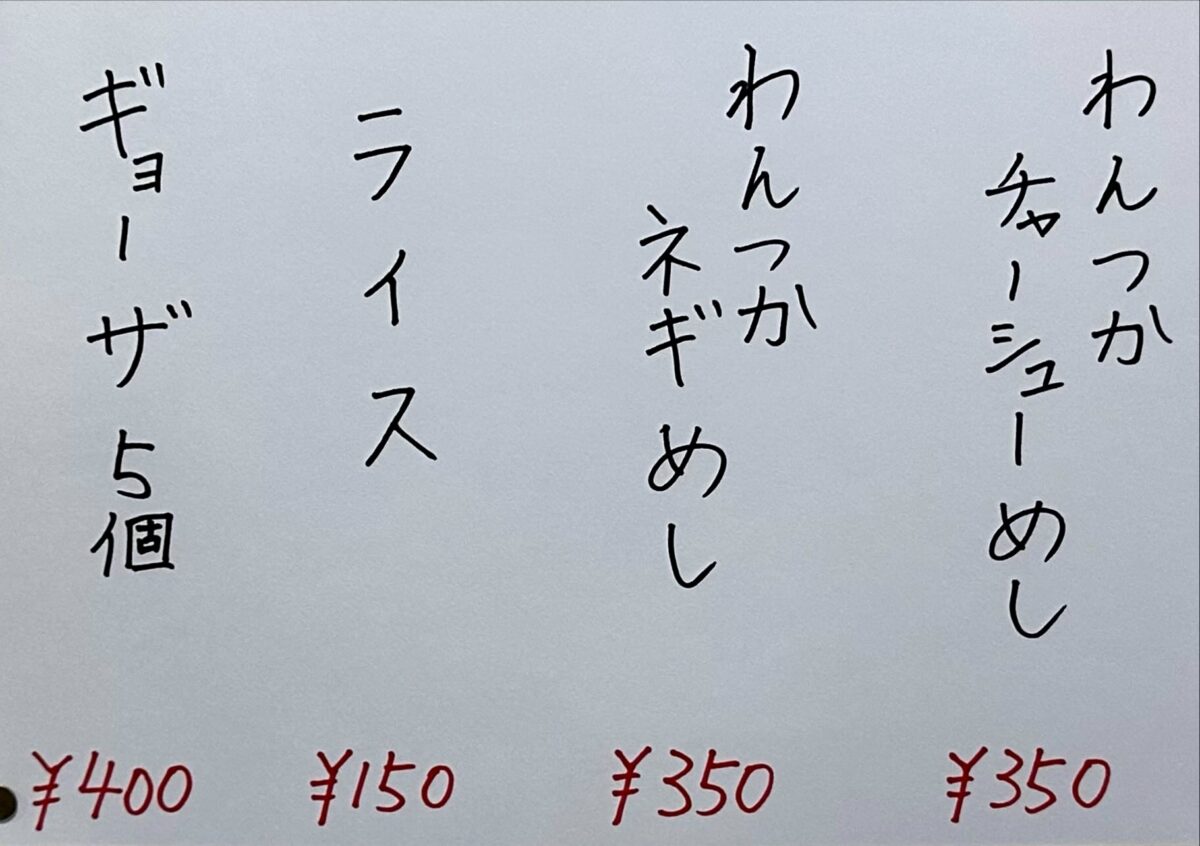 わんつか
チャーシューめし
¥350
わんつか
ネギめし
¥350
ライス
¥150
ギョーザ5個
¥400